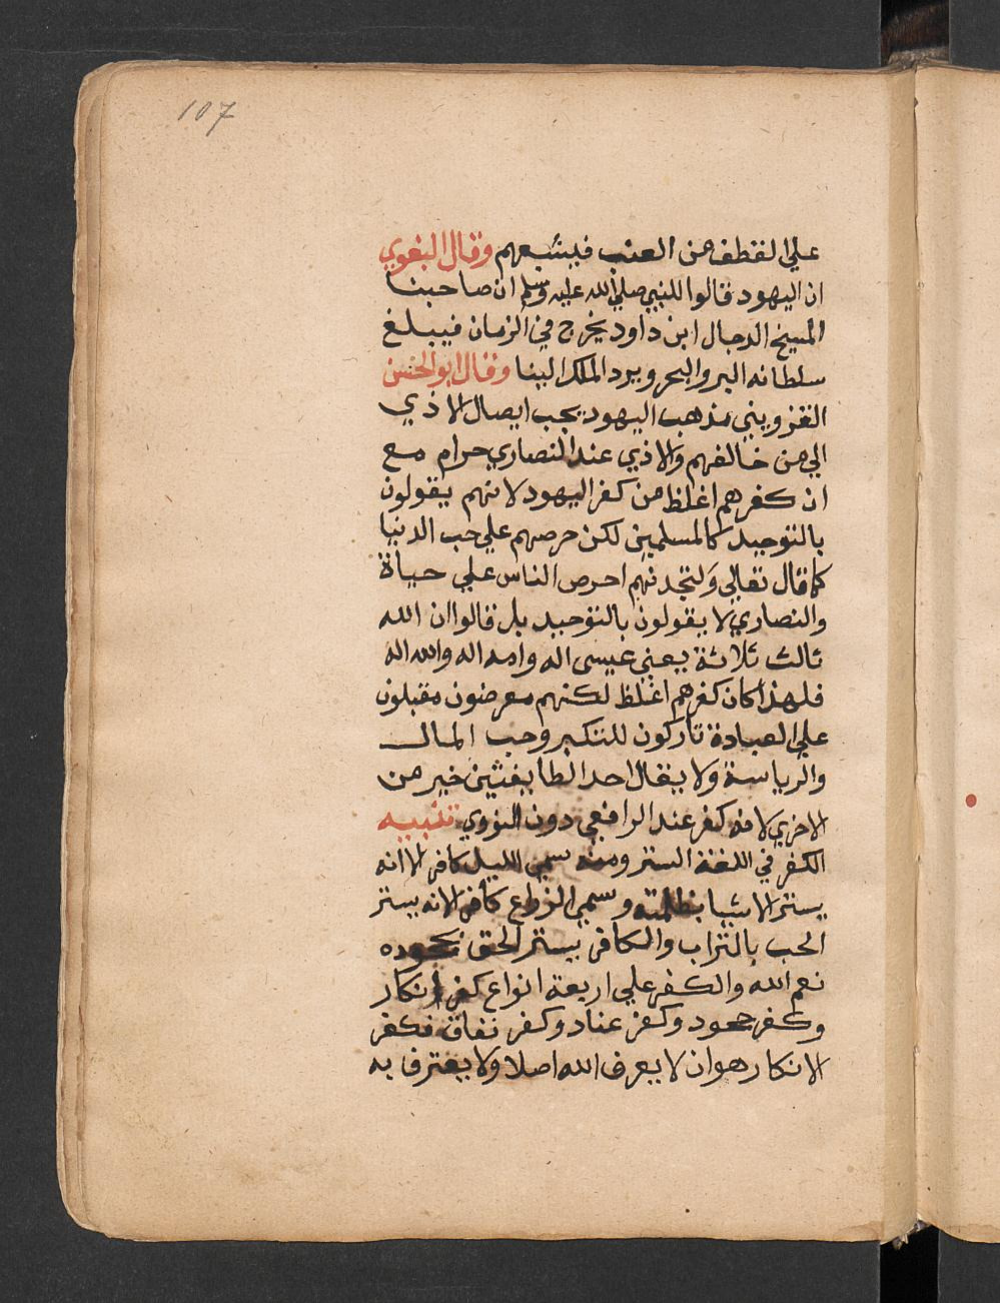 107
علي القطف من العنب فيشبعهم وقال البغوي
ان اليهود قالوا للنبي صلي الله عليه وسلم ان صاحبنا
المسيح الدجال ابن داود يخرج في الزمان فيبلغ
سلطانه البر والبحر ويرد الملك الينا وقال ابو الحسن
القزويني مذهب اليهود يجب ايصال الاذي
الي من خالفهم والاذي عند النصاري حرام مع
ان كفرهم اغلظ من كفر اليهود لانهم يقولون
بالتوحيد كالمسلمين لكن حرصهم علي حب الدنيا
كما قال تعالي ولتجدنهم احرص الناس علي حياة
والنصاري لا يقولون بالتوحيد بل قالوا ان الله
ثالث ثلاثة يعني عيسي اله وامه اله والله اله
فلهذا كان كفرهم اغلظ لكنهم معرضون مقبلون
علي العبادة تاركون للتكبر وحب المال
والرياسة ولا يقال احد الطايفتين خير من
الاخري لانه كفر عند الرافعي دون النووي تنبيه
الكفر في اللغة الستر ومنه سمي الليل كافرا لانه
يستر الاشيا بظلمته وسمي الزراع كافرا لانه يستر
الحب بالتراب والكافر يستر الحق بجحوده
نعم الله والكفر علي اربعة انواع كفر انكار
وكفر جحود وكفر عناد وكفر نفاق فكفر
الانكار هو ان لا يعرف الله اصلا ولا يعترف به